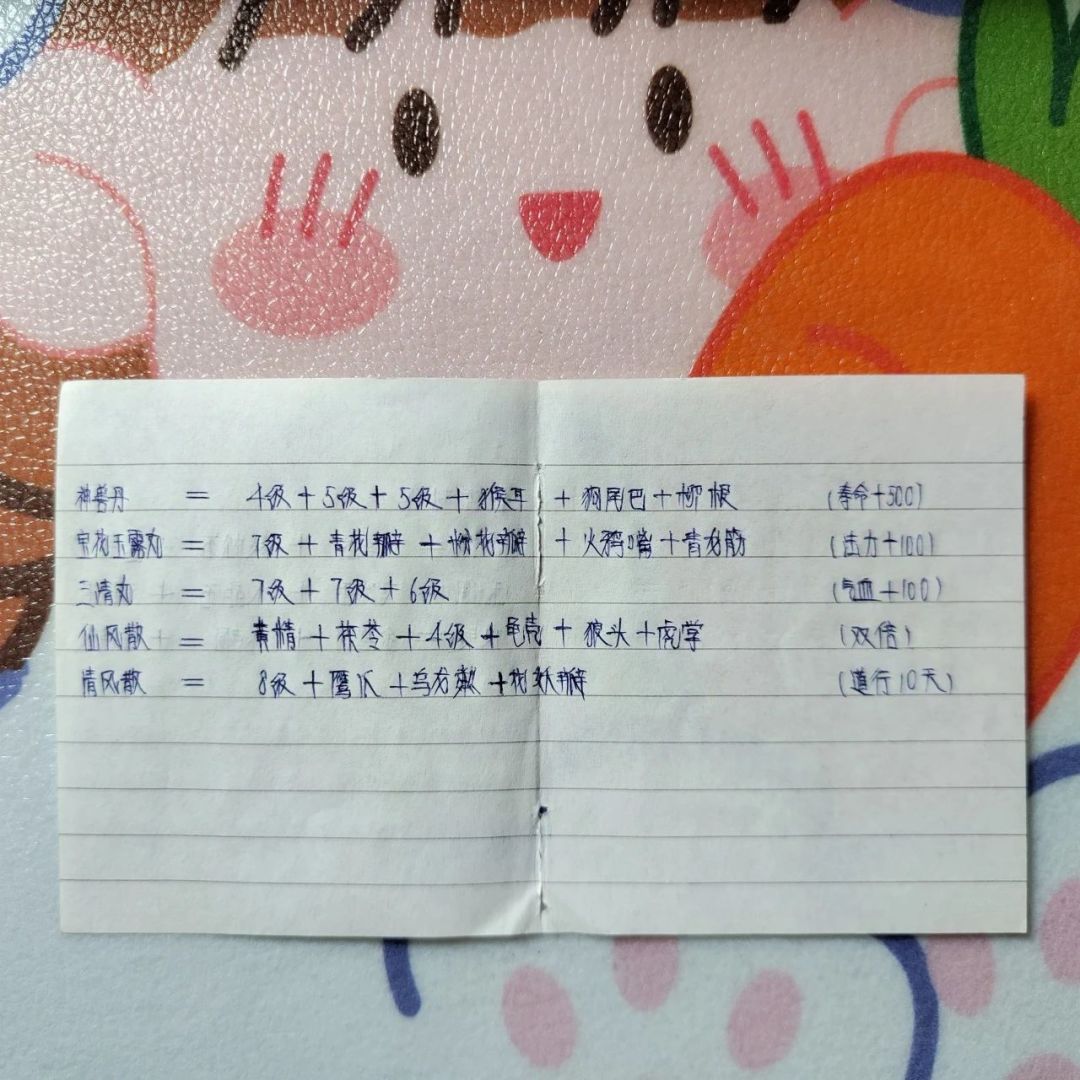 神兽丹 = 4级 + 5级 + 5级 + 猴耳 + 狗尾巴 + 柳根 (寿命+500)
宝花玉露丸 = 7级 + 青花瓣 + 粉花瓣 + 火鸦嘴 + 青龙筋 (法力+100)
三清丸 = 7级 + 7级 + 6级 (气血+100)
仙风散 = 黄精 + 茯苓 + 4级 + 龟壳 + 狼头 + 虎掌 (双倍)
清风散 = 8级 + 鹰爪 + + 花妖瓣 (道行10天)